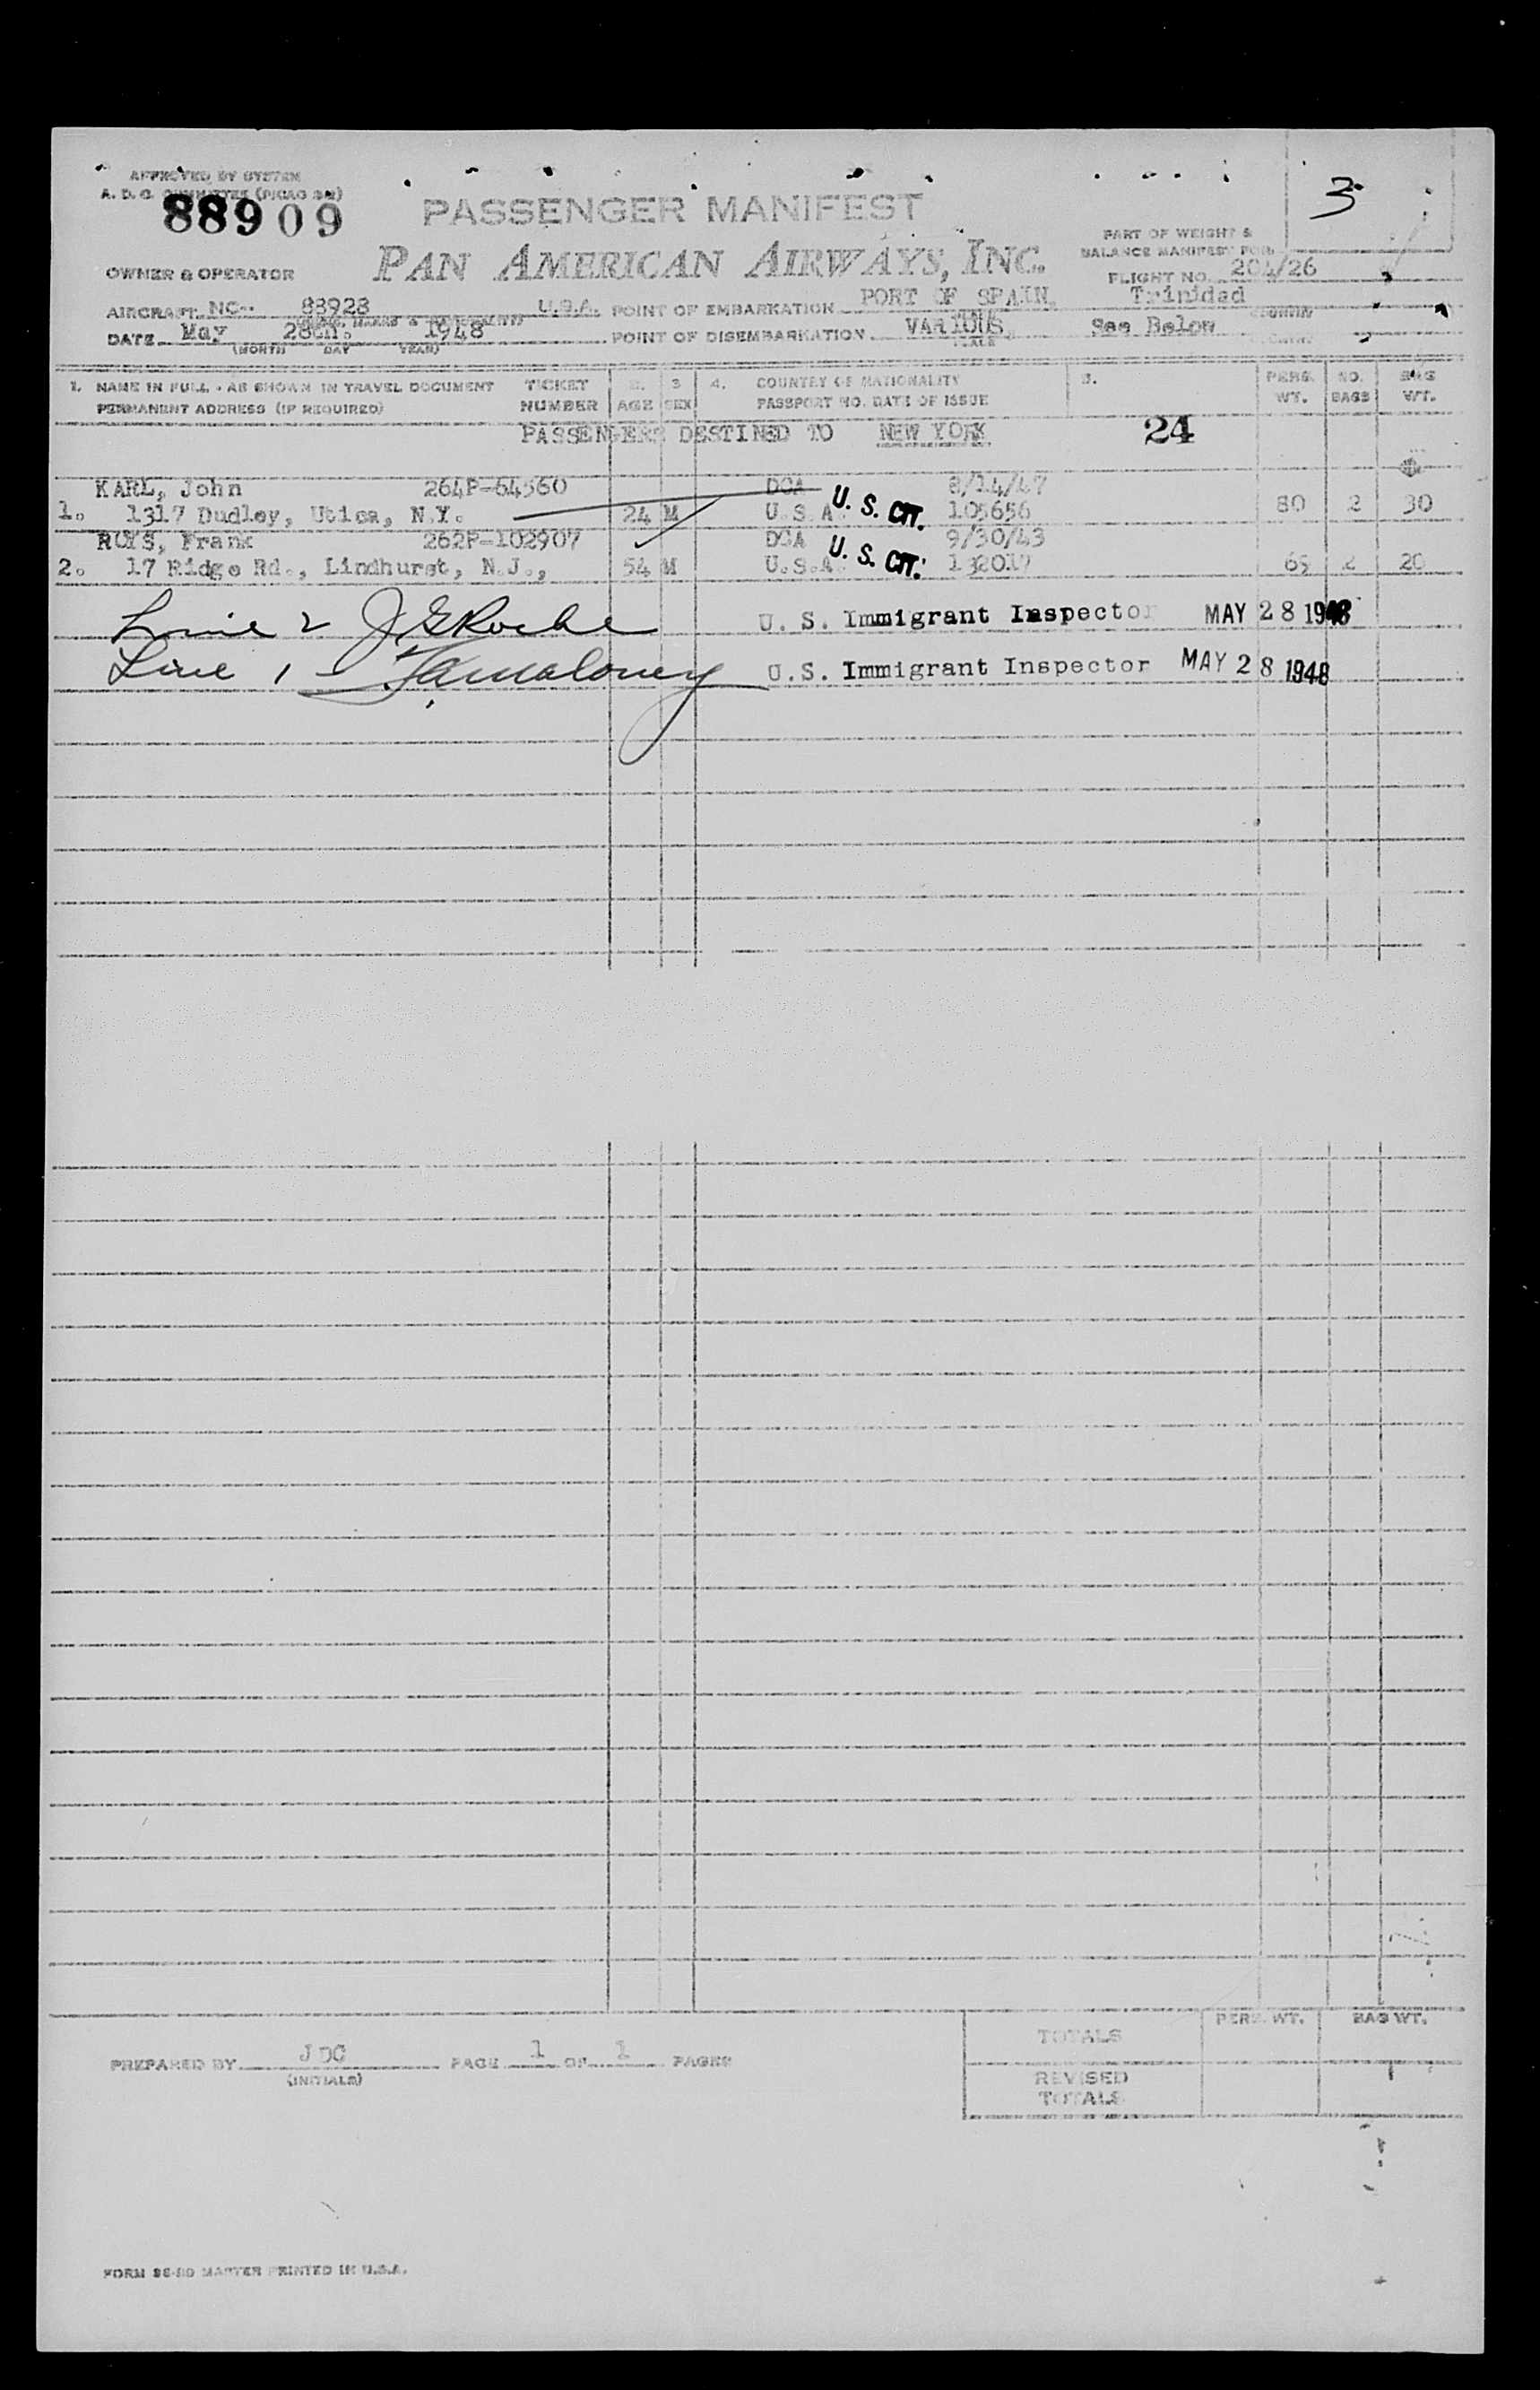 APPROVED BY SYSTEM
88909
PASSENGER MANIFEST
3
PART OF WEIGHT &
BALANCE MANIFEST FOR
OWNER & OPERATOR
PAN AMERICAN AIRWAYS, INC.
FLIGHT NO. 204/26
AIRCRAFT NC- 88928 U.S.A. POINT OF EMBARKATION PORT OF SPAIN, Trinidad
DATE May 28th. 1948 POINT OF DISEMBARKATION VARIOUS, See Below
(MONTH DAY YEAR)
1. NAME IN FULL - AS SHOWN IN TRAVEL DOCUMENT TICKET 2. 3 4. COUNTRY OF NATIONALITY 5. PERS. NO. BAG
PERMANENT ADDRESS (IF REQUIRED) NUMBER AGE SEX PASSPORT NO. DATE OF ISSUE WT. BAGS WT.
PASSENGERS DESTINED TO NEW YORK 24
KARL, John 264P-64560 8/14/47
1. 1317 Dudley, Utica, N.Y. 24 M U.S.A. U. S. CIT. 105656 80 2 30
Frank 262P-102907 9/30/43
2. 17 Ridge Rd., Lindhurst, N.J., 54 M U.S.A. U. S. CIT. 132017 65 2 20
Line 2 J G Roche U. S. Immigrant Inspector MAY 28 1948
Line 1 - U.S. Immigrant Inspector MAY 28 1948
PERS. WT. BAG WT.
TOTALS
PREPARED BY JDC PAGE 1 OF 1 PAGES
(INITIALS)
REVISED
TOTALS
MASTER PRINTED IN U.S.A.